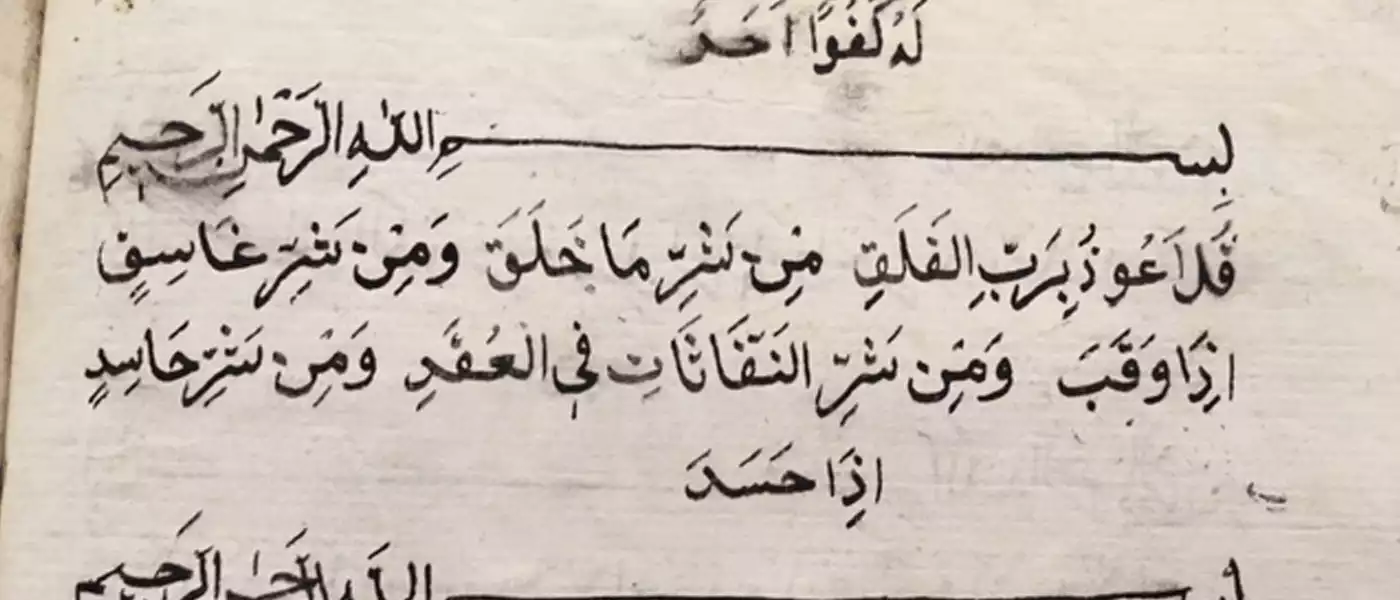 لَهُ كُفُوًا اَحَدٌ
بِسْمِ اللّٰهِ الرَّحْمٰنِ الرَّحِيمِ
قُلْ اَعُوذُ بِرَبِّ الفَلَقِ مِنْ شَرِّ مَا خَلَقَ وَمِنْ شَرِّ غَاسِقٍ
اِذَا وَقَبَ وَمِنْ شَرِّ النَّفَّاثَاتِ فِي العُقَدِ وَمِنْ شَرِّ حَاسِدٍ
اِذَا حَسَدَ
بِسْمِ اللّٰهِ الرَّحْمٰنِ الرَّحِيمِ